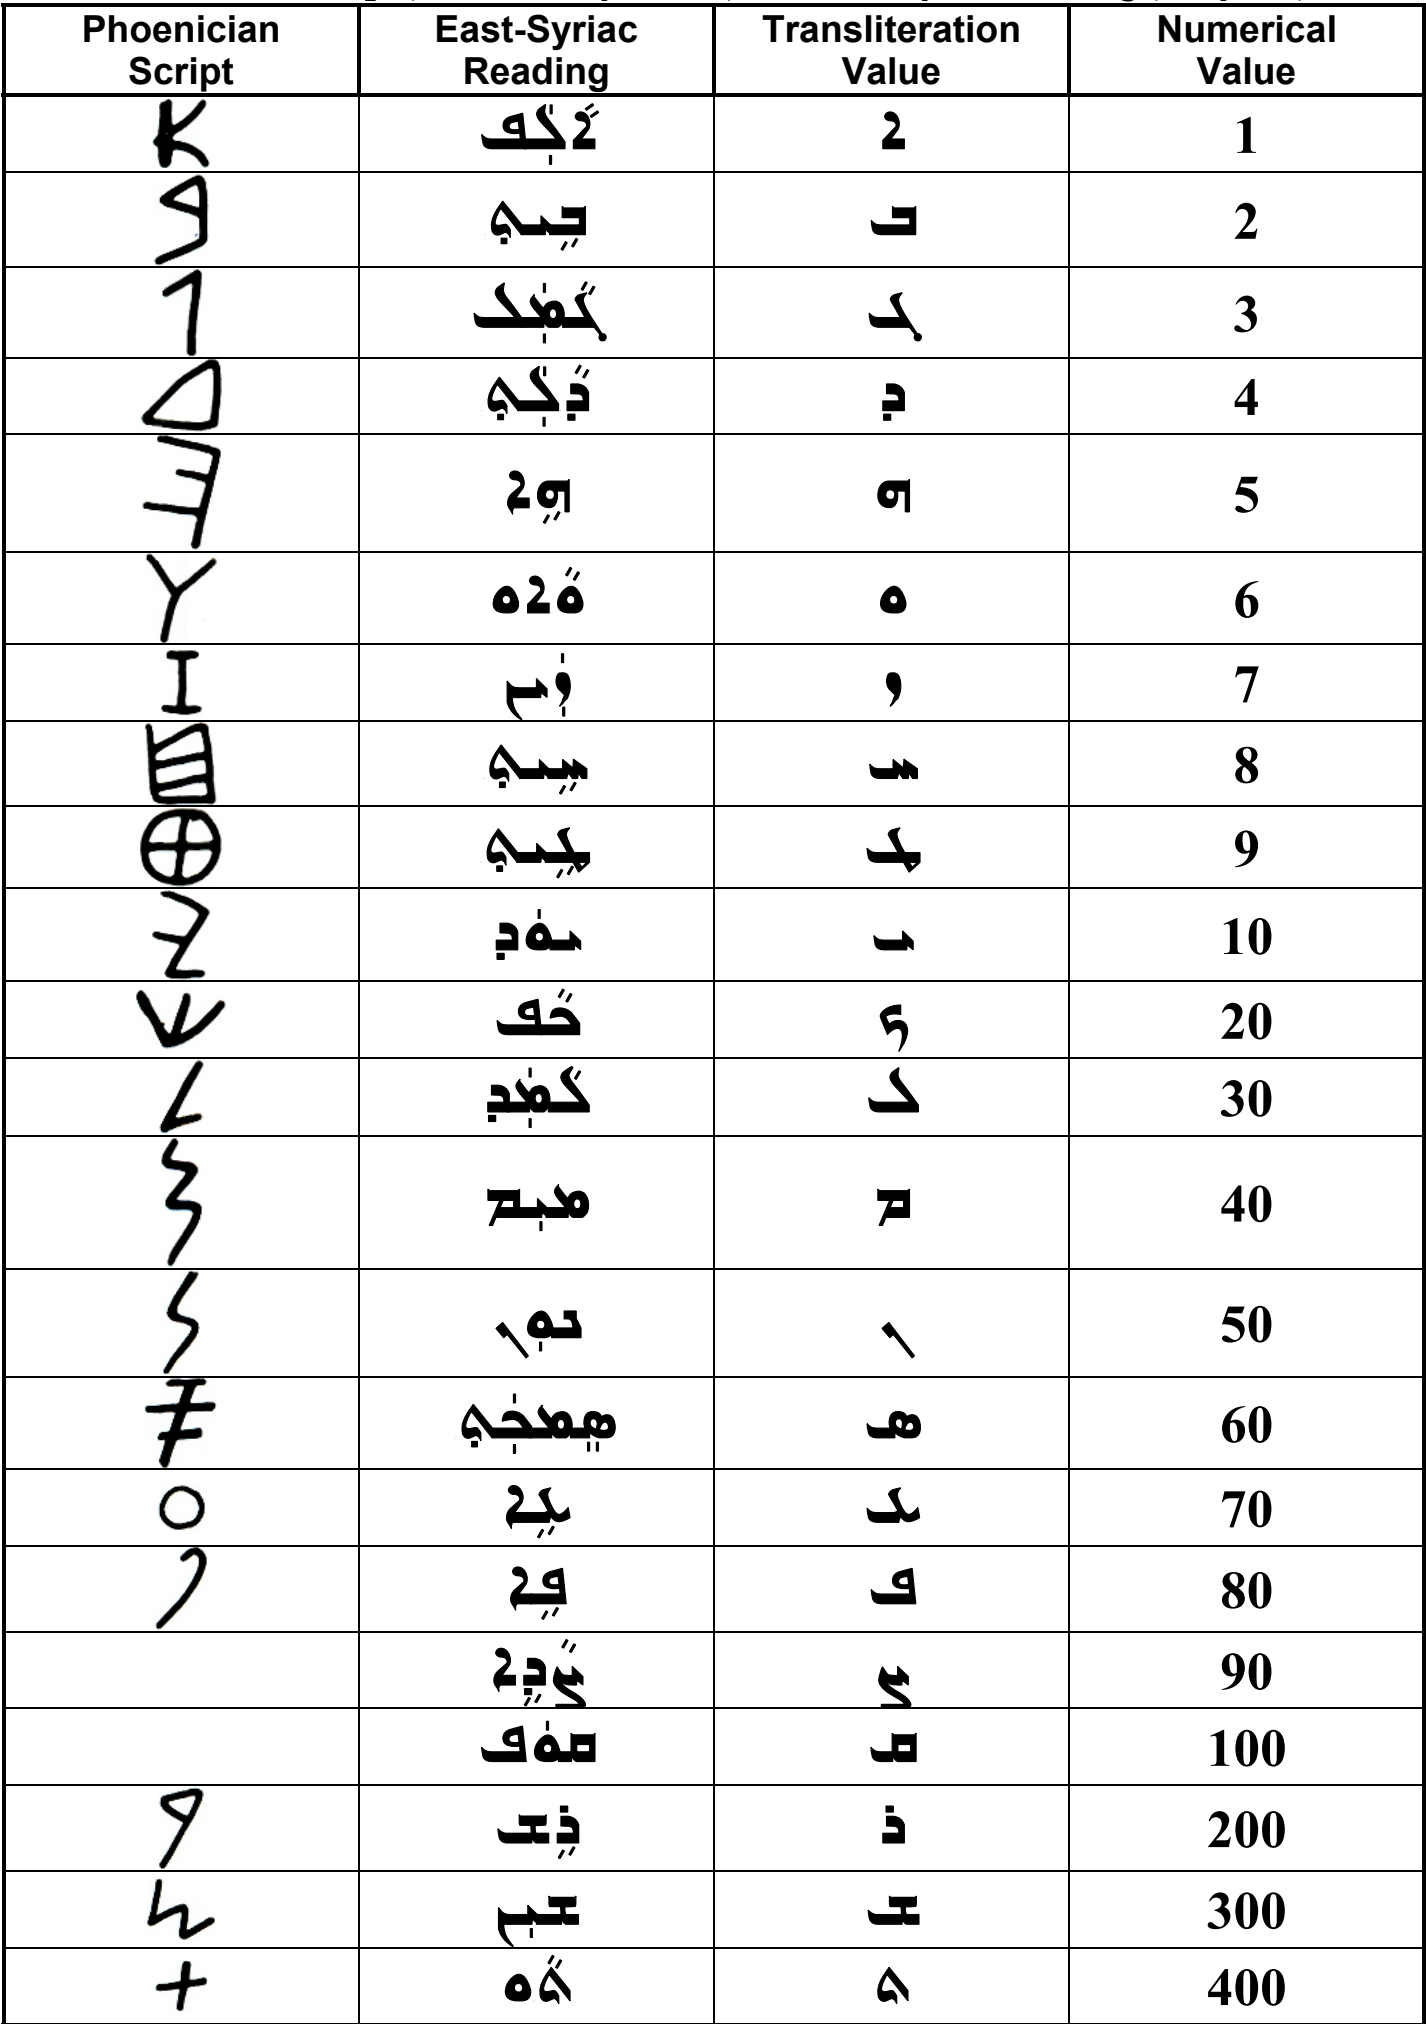 Phoenician Script East-Syriac Reading Transliteration Value Numerical Value
𐤀 ܐܵܠܲܦ ܐ 1
𐤁 ܒܹܝܬ݂ ܒ 2
𐤂 ܓܵܡܲܠ ܓ 3
𐤃 ܕܵܠܲܬ݂ ܕ 4
𐤄 ܗܹܐ ܗ 5
𐤅 ܘܵܐܘ ܘ 6
𐤆 ܙܲܝܢ ܙ 7
𐤇 ܚܹܝܬ݂ ܚ 8
𐤈 ܛܹܝܬ݂ ܛ 9
𐤉 ܝܘܿܕ ܝ 10
𐤊 ܟܵܦ ܟ 20
𐤋 ܠܵܡܲܕ ܠ 30
𐤌 ܡܝܼܡ ܡ 40
𐤍 ܢܘܼܢ ܢ 50
𐤎 ܣܸܡܟܲܬ݂ ܣ 60
𐤏 ܥܹܐ ܥ 70
𐤐 ܦܹܐ ܦ 80
ܨܵܕܹܐ ܨ 90
ܩܘܿܦ ܩ 100
𐤓 ܪܹܫ ܪ 200
𐤔 ܫܝܼܢ ܫ 300
𐤕 ܬܵܘ ܬ 400